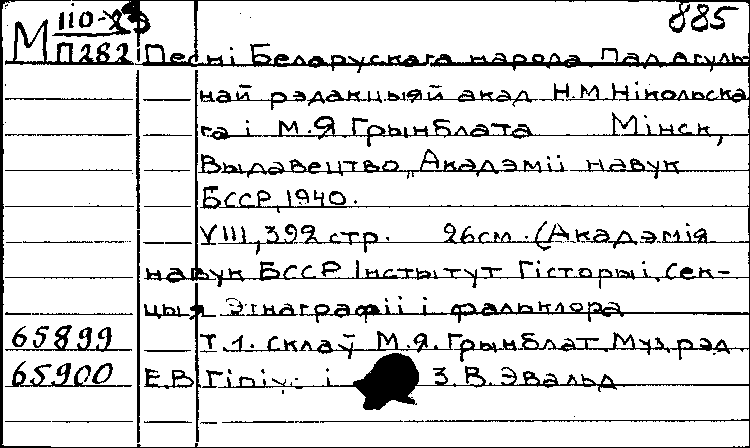 М 110-23 885
П282 Песні Беларускага народа Пад агуль-
най рэдакцыяй акад Н.М.Нікольска
га і М.Я.Грынблата Мінск,
Выдавецтво „Акадэміі навук
БССР, 1940.
VIII, 392 стр. 26см. (Акадэмія
навук БССР Інстытут Гісторыі. Сек-
цыя Этнаграфіі і фальклора
65899 Т.1. склаў М.Я.Грынблат. Муз.рэд.
65900 Е.В Гіпіус і З.В.Эвальд